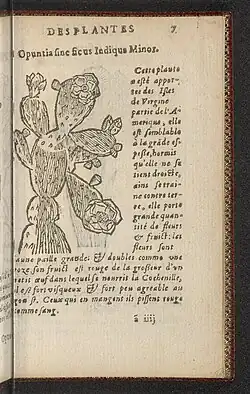 DES PLANTES 7
Opuntia sine ficus Indique Minor.
Cette plante
a esté appor-
tée des Isles
de Virgine
partie de l'A-
merique, elle
est semblable
à la gráde es-
pesse, hormis
qu'elle ne se
tient droicte,
ains se trai-
ne contre ter-
re, elle porte
grande quan-
tité de fleurs
& fruict: les
fleurs sont
aune paille grande: & doubles comme une
roze, son fruict est rouge de la grosseur d'un
petit œuf dans lequel se nourrit la Cochenille,
il est fort visqueux & fort peu agreable au
goust. Ceux qui en mangent ils pissent rouge
comme sang.
à iiij